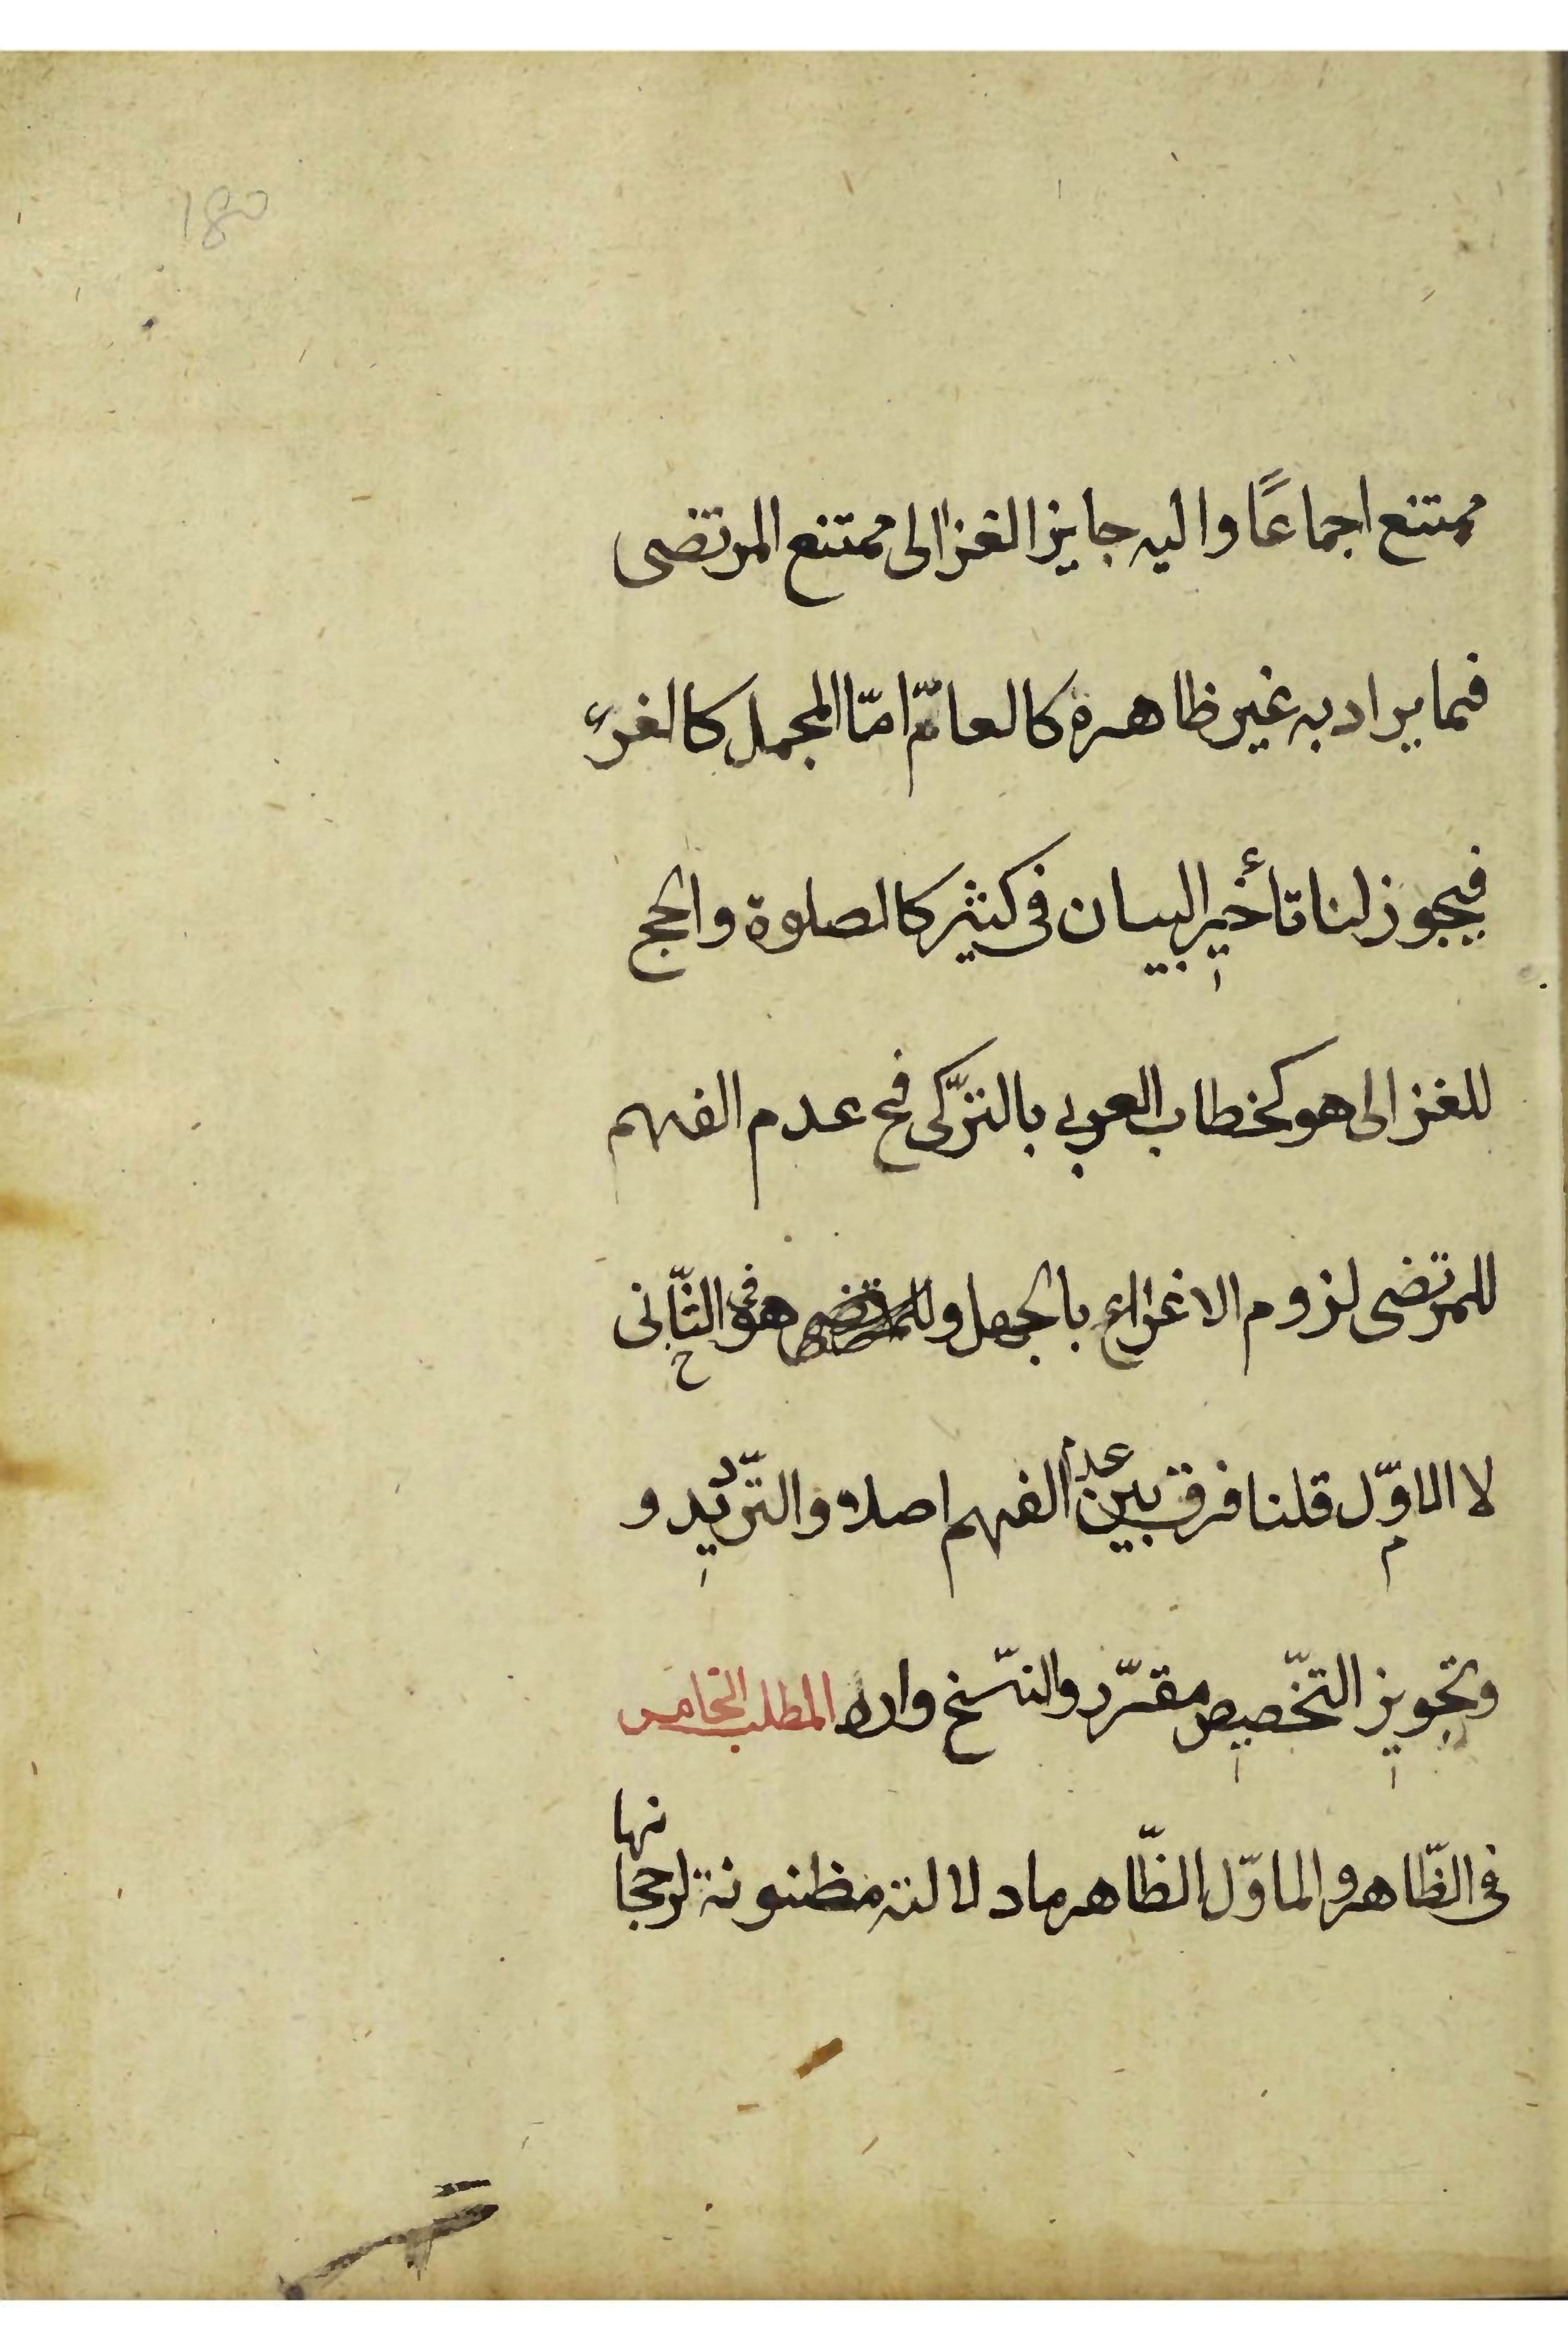 180
ممتنع اجماعًا واليه جايز الغزالى ممتنع المرتضى
فيما يراد به غير ظاهره كالعامّ امّا المجمل كالقرء
فيجوز لنا تأخير البيان فى كثير كالصلوة والحج
للغزالى هو كخطاب العربي بالتركى فى عدم الفهم
للمرتضى لزوم الاغراء بالجهل و هو فى الثّانى
لا الاوّل قلنا فرق بين عدم الفهم اصلا والتّرديد و
وتجويز التخّصيص مقرّر والنسّخ وارد المطلب الخامس
فى الظّاهر والماوّل الظّاهر ما دلالته مظنونة لرجحانها